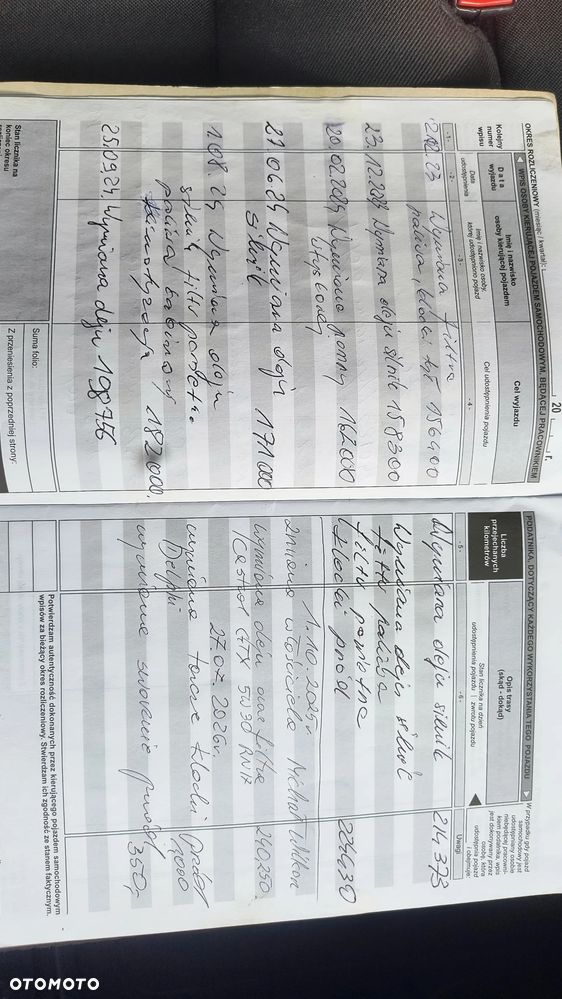 OKRES ROZLICZENIOWY (miesiąc / kwartał): 20 r.
WPIS OSOBY KIERUJĄCEJ POJAZDEM SAMOCHODOWYM, BĘDĄCEJ PRACOWNIKIEM
Kolejny numer wpisu
Data wyjazdu
Imię i nazwisko osoby kierującej pojazdem
Cel wyjazdu
Data udostępnienia
Imię i nazwisko osoby, której udostępniono pojazd
Cel udostępnienia pojazdu
-1-
-2-
-3-
-4-
Wymiana filtra
paliwa, klocki tył 156400
23.12.2023 Wymiana oleju silnik 158300
20.02.2024 Wymiana pompy 162000
27.06.24 Wymiana oleju 171000
silnik
1.08.24 Wymiana oleju
silnik, filtr powietrza
paliwa kabinowy
182000.
25.09.24. Wymiana oleju 198756
Stan licznika na koniec okresu
Suma folio:
Z przeniesienia z poprzedniej strony:
PODATNIKA, DOTYCZĄCY KAŻDEGO WYKORZYSTANIA TEGO POJAZDU
W przypadku gdy pojazd samochodowy jest udostępniany osobie niebędącej pracownikiem podatnika, wpis jest dokonywany przez osobę, która udostępnia pojazd i obejmuje:
Liczba przejechanych kilometrów
Opis trasy (skąd - dokąd)
Stan licznika na dzień
udostępnienia pojazdu | zwrotu pojazdu
-5-
-6-
Uwagi
Wymiana oleju silnik 214373
Wymiana oleju silnik
filtr paliwa
filtr powietrza
klocki przód
1.10.2025r
zmiana właściciela Michał
wymiana oleju oraz filtra 240,350.
Castrol GTX 5W30 RN17
27.07.2026r
wymiana tarcze klocki przód
Delphi
wymienione przody 350,-
Potwierdzam autentyczność dokonanych przez kierującego pojazdem samochodowym
wpisów za bieżący okres rozliczeniowy. Stwierdzam ich zgodność ze stanem faktycznym.
OTOMOTO